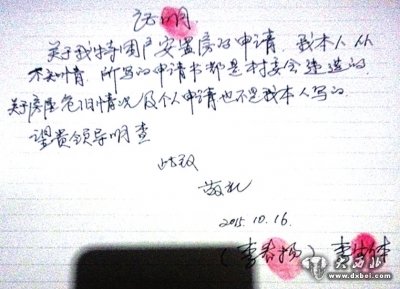 证明
关于我特困户安置房的申请，我本人从
不知情，所写的申请书都是村委会造的，
关于房屋危旧情况及个人申请也不是我本人写的。
望贵领导明查
此致
敬礼
2015.10.16.
(李春扬) 李
www.dxbei.com